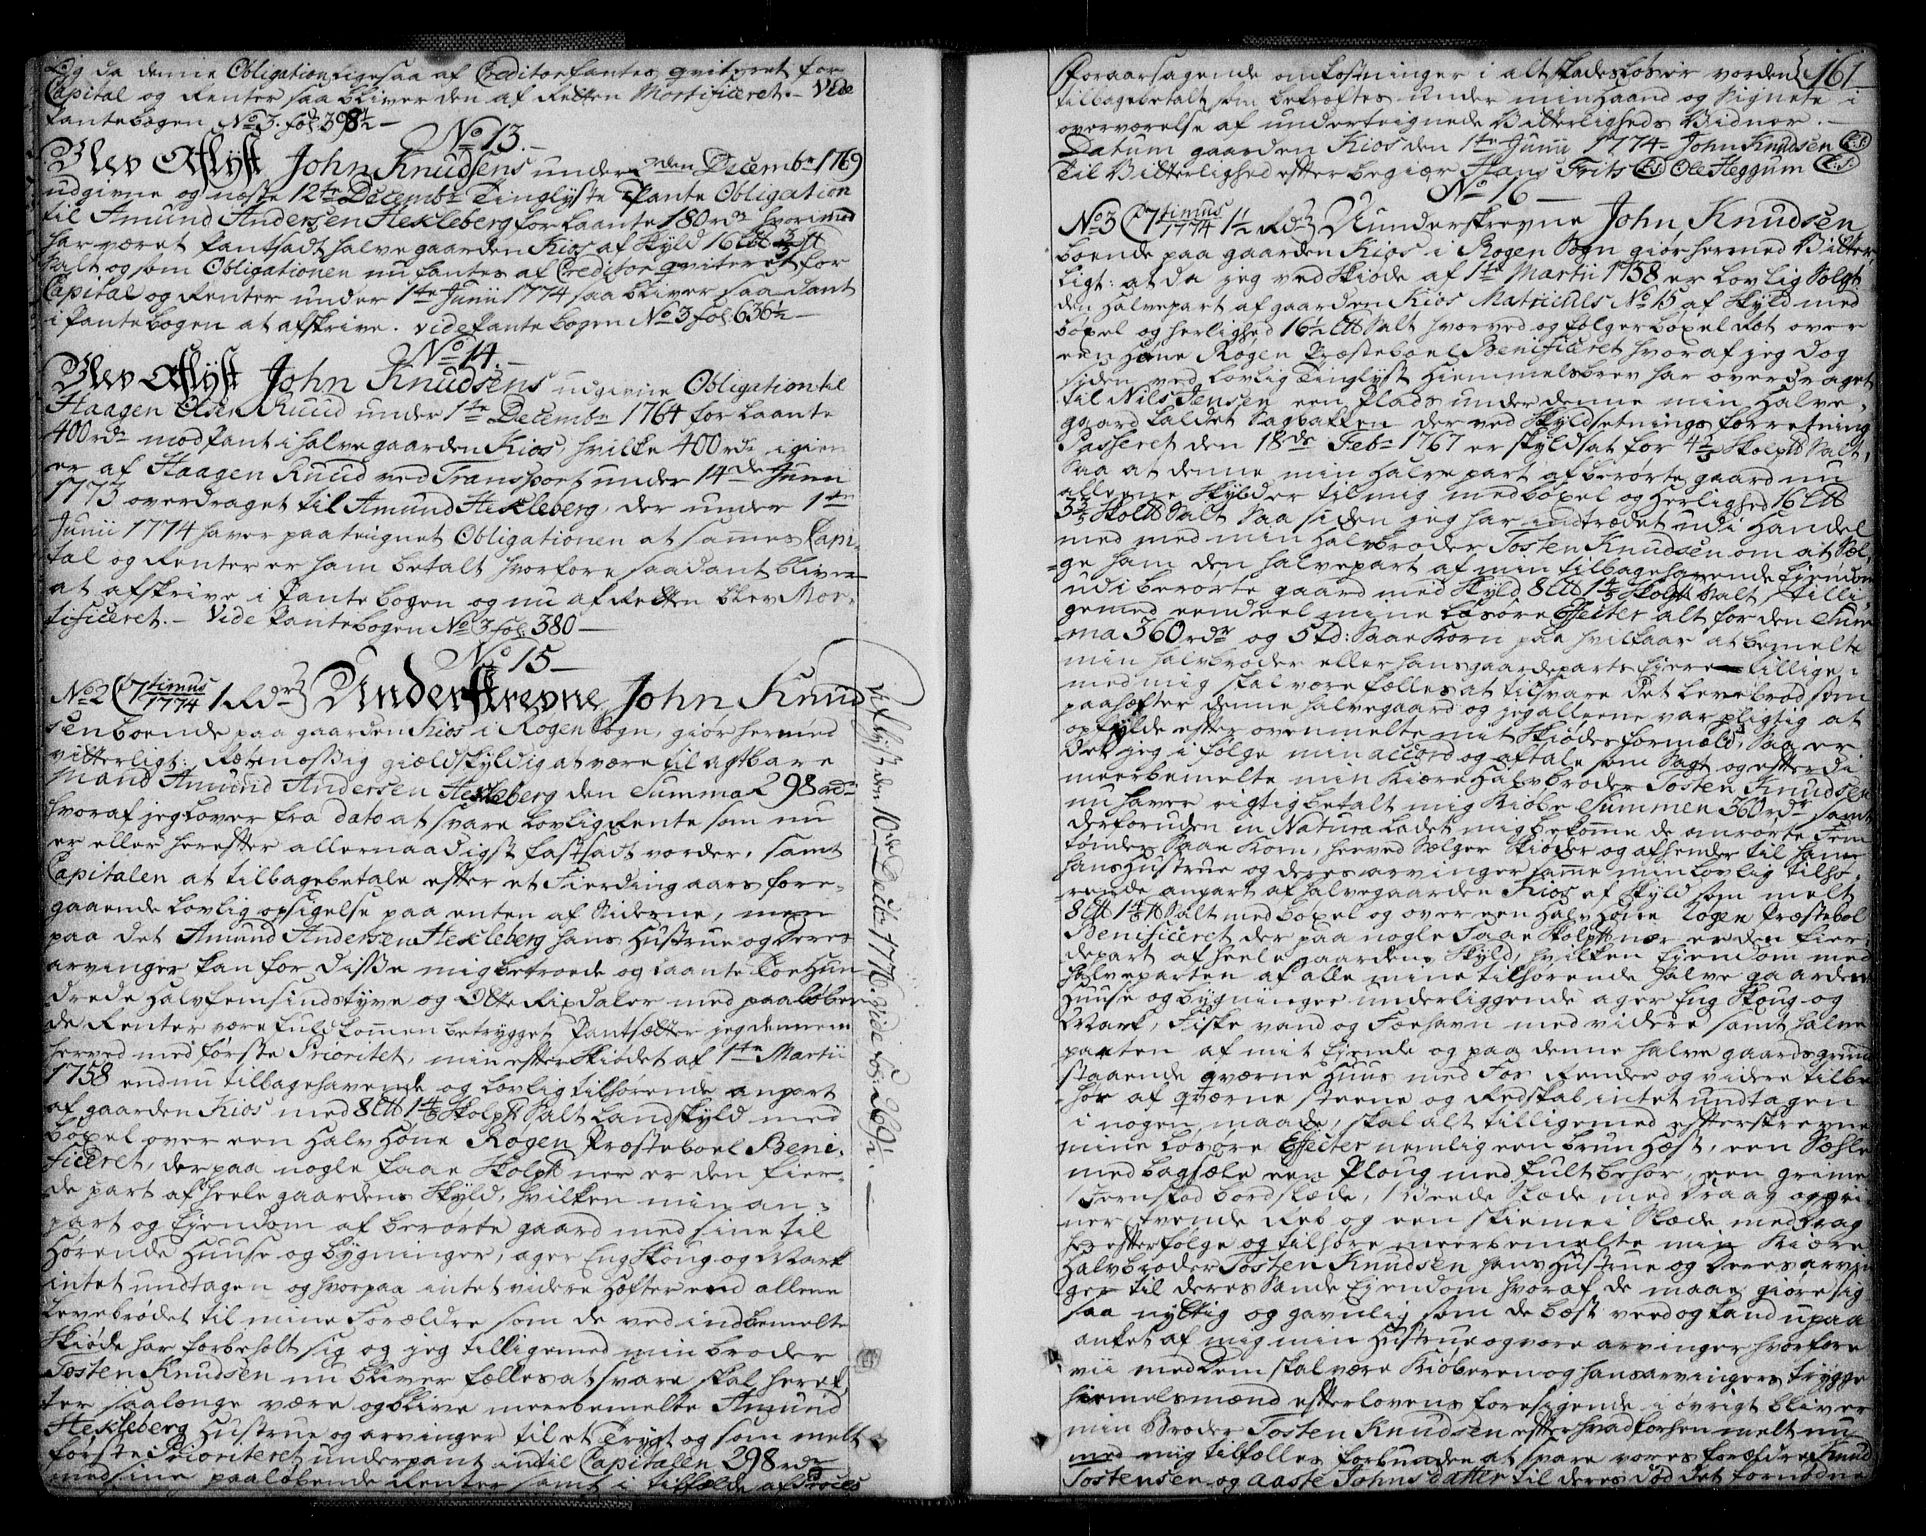 Og da denne Obligation ligesaa af Creditor fantes qvitteret for
Capital og Renter saa bliver den af Retten Mortificeret. - Vide
Pantebogen No 3. fol: 398½ -
No 13. -
Blev Aflyst John Knudsens under Decembr 1769
udgivne og næste 12te Decembr Tinglyste Pante Obligation
til Amund Andersen Hekleberg for Laante 180 rdr hvorimod
har været Pantsadt halve gaarden Kios af Skyld 16 Ltt
Salt og som Obligationen nu fantes af Creditor qvitteret for
Capital og Renter under 1te Junii 1774 saa bliver saadant
i Pantebogen at afskrive. Vide Pantebogen No 3 fol: 636½ -
No 14. -
Blev Aflyst John Knudsens udgivne Obligation til
Haagen Olsen Ruud under 1te Decembr 1764 for Laante
400 rdr mod Pant i halve gaarden Kios, hvilke 400 rdr igien
er af Haagen Ruud ved Transport under 14de Junii
1773 overdraget til Amund Hekleberg, der under 1te
Junii 1774 haver paateignet Obligationen at sammes Capi-
tal og Renter er ham betalt hvorfore saadant bliver
at afskrive i Pantebogen og nu af Retten blev Mor-
tificeret. - Vide Pantebogen No 3 fol: 380 -
No 15 -
No 2 C 7timus 1774 1 Rdr Underskrevne John Knud-
sen boende paa gaarden Kios i Rogen Sogn, giør hermed
vitterligt: Retmæssig gieldskyldig at være til agtbare
Mand Amund Andersen Hekleberg den Summa 298 rdr
hvoraf jeg lover fra dato at svare lovlig Rente som nu
er eller herefter allernaadigst fastsadt vorder, samt
Capitalen at tilbagebetale efter et Fierding aars fore-
gaaende lovlig opsigelse paa enten af Siderne, men
paa det Amund Andersen Hekleberg hans Hustrue og Deres
arvinger kan for disse mig betroede og laante Toe Hun-
drede Halvfemsindstyve og Otte Rixdaler med paaløben-
de Renter være fuldkommen betrygget, Pantsætter jeg dennem
herved med første Prioritet, min efter Skiødet af 1te Martii
1758 endnu tilbagehavende og lovlig tilhørende anpart
af gaarden Kios med 8 Ltt 1 4/5 Skolptt Salt Landskyld med
bøxel over een Halv Hone Rogen Præsteboel Beni-
ficeret, der paa nogle faae Skolptt nær er den Fier-
de part af heele gaardens Skyld, hvilken min an-
part og Ejendom af berørte gaard med sine til
Hørende Huuse og bygninger, ager Eng Skoug og Mark
intet undtagen og hvorpaa intet videre Hæfter end allene
Levebrødet til mine Forældre som de ved indbemelte
Skiøde har forbeholt sig og jeg tilligemed min broder
Tosten Knudsen nu bliver fælles at svare skal heref-
ter saalenge være og blive meerbemelte Amund
Hekleberg Hustrue og arvinger til et Trygt og som melt
første Prioriteret underpant indtil Capitalen 298 rdr
med sine paaløbende Renter samt i tilfælde af Proces
Aflyst den 10de Decbr 1776 vide fol: 269½. -
161
foraarsagende omkostninger i alt skadesløs er vorden
tilbagebetalt som bekræftes under min Haand og Signete i
overværelse af undertegnede Vitterligheds Vidner. -
Datum gaarden Kios den 1te Junii 1774 - John Knudsen (L:S:)
Til Vitterlighed efter begiær Hans Frits (L:S:) Ole Heggum (L:S:)
No 16 -
No 3 C 7timus 1774 1½ Rdr Underskrevne John Knudsen
boende paa gaarden Kios i Rogen Sogn giør hermed Vitter-
ligt: at da jeg ved Skiøde af 1te Martii 1758 er lovlig Solgt
den Halvepart af gaarden Kios Matriculs No 15 af Skyld med
bøxel og herlighed 16½ Ltt Salt hvorved og følger bøxel Ræt over
een Hone Rogen Præsteboel Benificeret hvoraf jeg dog
siden ved lovlig Tinglyst Hiemmelsbrev har overdraget
til Nils Jensen een Plads under denne min Halve-
gaard kaldet Sagbakken der ved Skyldsetnings forretning
Passeret den 18de Febr 1767 er skyldsat for 4 Skolptt Salt,
Saa at denne min Halvepart af berørte gaard nu
alleene Skylder til mig med bøxel og Herlighed 16 Ltt
3 3/5 Skoltt Salt Saa siden jeg har indtrædet udi Handel
med med min Halvbroder Tosten Knudsen om at Sæl-
ge ham den Halvepart af min tilbagehavende Ejendom
udi berørte gaard med Skyld 8 Ltt 1 4/5 Skoltt Salt, tilli-
gemed eendeel mine Løsøre Effecter alt for den Sum-
ma 360 rdr og 5 td: Saae Korn paa hvilkaar at bemelte
min halvbroder eller hans gaardeparts Ejere tillige
med mig skal være fælles at tilsvare det levebrød som
paahæfter denne halvegaard og jeg alleene var pligtig at
opfylde efter ovenmelte mit Skiødes formæld, Saa er
det jeg i følge min accord og aftale som Sagt og efterdi
meerbemelte min Kiære Halvbroder Tosten Knudsen
nu haver rigtig betalt mig Kiøbe Summen 360 rdr samt
derforuden in Natura Ladet mig bekomme de anrørte Fem
tønder Saae Korn, herved Sælger Skiøder og afhender til ham
hans Hustrue og deres arvinger samme min lovlig tilhø-
rende anpart af halvegaarden Kios af Skyld som melt
8 Ltt 1 4/5 tt Salt med bøxel og over een Halv Hone Rogen Præstebol
Benificeret der paa nogle Faae Skolptt nær er den fier-
depart af heele gaardens Skyld, hvilken Ejendom med
halveparten af alle mine tilhørende Halve gaardens
Huuse og bygninger underliggende ager Eng Skoug og
Mark, Fiske vand og Fæehavn med videre samt halve
parten af mit Ejende og paa denne halve gaards grund
staaende qværne Huus med Fos Render og videre tilbe-
hør af qværne steene og Redskab intet undtagen
i nogen maade, skal alt tilligemed efterskrevne
mine Løsøre Effecter nemlig een brun Hæst, een Sæhle
med bagsæle een Ploug med fult behør, een grime
1 Jernskod bordslæde, 1 Veede Slæde med Draav og gri-
ner tvende Reb og een skiemei Slæde med Drag
her efter følge og tilhøre meerbemelte min Kiære
Halvbroder Tosten Knudsen hans Hustrue og deres arvin-
ger til deres Sande Ejendom hvoraf de maae giøre sig
saa nyttig og gavnlig som de bæst veed og kand upaa
anket af mig min Hustrue og vore arvinger hvorfore
vii med Dem skal være Kiøberen og hans arvingers trygge
Hiemelsmænd efter lovens foresigende i øvrigt bliver
min Broder Tosten Knudsen efter hvad forhen melt nu
med mig tilfælles forbunden at svare vores forældre Knud
Tostensen og Aaste Johnsdatter til deres død det fornødne